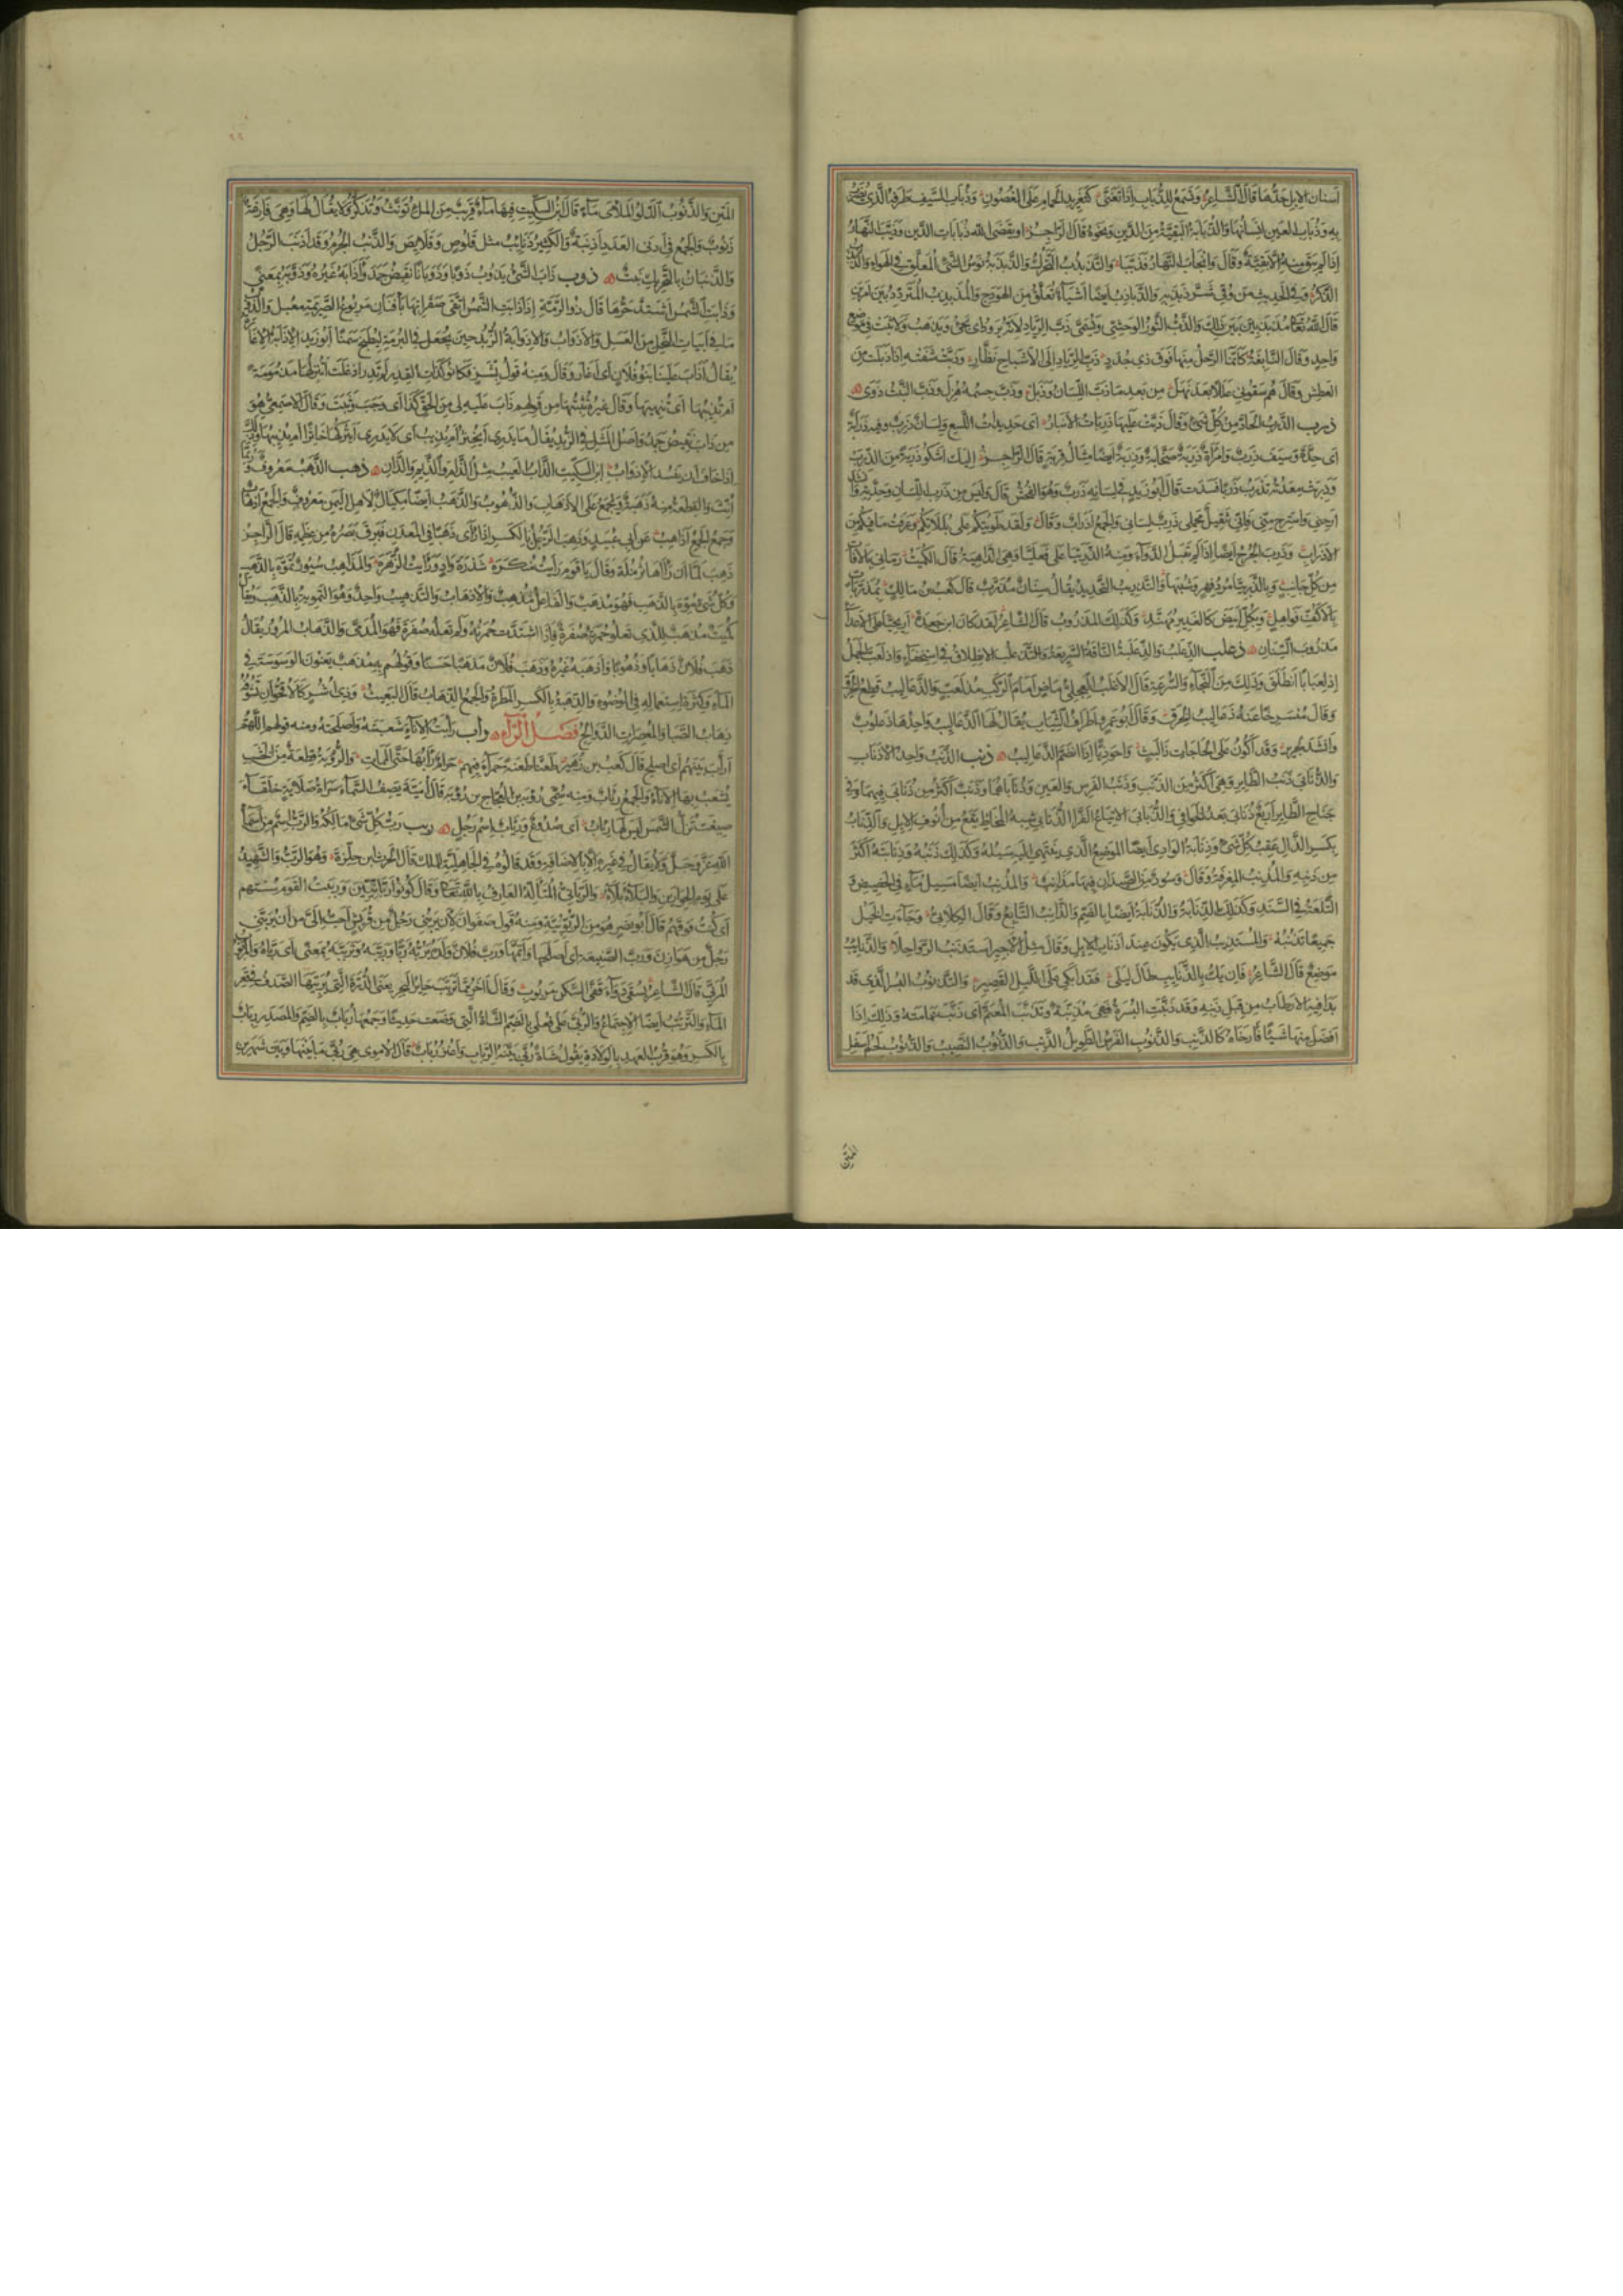 اسنان الابل حدّها قال الشاعر وتسمع للذباب اذا تغنى كتغريد الحمام على الغصون وذباب السيف طرفه الذي يضرب
به وذباب العين انسانها والذبابة البقية من الدين ونحوه قال الراجز او يقضى الله ذبابات الدين وذبب النهار
اذا لم يبق منه الا بقية وقال وانجاب النهار فذببا والتذبذب التحرك والذبذبة نوس الشئ المعلق في الهواء والذبذب
الذكر وفي الحديث من وقى شر ذبذبه والذباذب ايضا اشياء تعلق من الهودج والمذبذب المتردد بين امرين
قال الله تعالى مذبذبين بين ذلك والذب الثور الوحشي ويسمى ذب الرياد لانه يرود اى يجئ ويذهب ولا يثبت في موضع
واحد وقال النابغة كانما الرحل منها فوق ذى جدد ذب الرياد الى الاشباح نظار وذبت شفته اذا ذبلت من
العطش وقال هم سقوني عللا بعد نهل من بعد ما ذب اللسان وذبل وذب جسمه هزل وذب النبت ذوى
ذرب الذرب الحاد من كل شئ وقال دبت عليها ذربات الانبار اى حديدات اللسع ولسان ذرب وفيه ذرابة
اى حدة وسيف ذرب وامراة ذربة صخابة وذربة ايضا مثال قربة قال الراجز اليك اشكو ذربة من الذرب
وذربت معدته تذرب ذربا فسدت قال ابو زيد في لسانه ذرب وهو الفحش قال وليس من ذرب اللسان وحدته وانشد
ارحنى واسترح منى فانى ثقيل محملى ذرب لسانى والجمع اذراب وقال ولقد طويتكم على بللاتكم وعرفت ما فيكم من
الاذراب وذرب الجرح ايضا اذا لم يقبل الدواء ومنه الذربيا على فعليا وهى الداهية قال الكميت رمانى بالافات
من كل جانب وبالذربيا مرد فهر وشيبها والتذريب التحديد يقال سنان مذرب قال كعب بن مالك بمذربات
بالاكف نواهل وبكل ابيض كالغدير مهند وكذلك المذروب قال الشاعر لقد كان ابن جعدة اريحيا على الاعداء
مذروب السنان ذعلب الذعلب والذعلبة الناقة السريعة والتذعلب الانطلاق في استخفاء واذلعب الجمل
اذلعبابا انطلق وذلك من النجاء والسرعة قال الاغلب العجلى ماض امام الركب مذلعب والذعاليب قطع الخرق
وقال منسرحا عنه ذعاليب الخرق وقال ابو عمرو اطراف الثياب يقال لها الذعاليب واحدها ذعلوب
وانشد لجرير وقد اكون على الحاجات ذا لبث واحوذيا اذا انضم الذعاليب ذنب الذنب واحد الاذناب
والذنابى ذنب الطائر وهى اكثر من الذنب وذنب الفرس والعير وذناباهما وذنب اكثر من ذنابى فيهما وفى
جناح الطائر اربع ذنابى بعد الخوافى والذنابى الاتباع الفراء الذنابى شبه المخاط يقع من انوف الابل والذناب
بكسر الذال عقب كل شئ وذنابة الوادى ايضا الموضع الذى ينتهى اليه سيله وكذلك ذنبه وذنابته اكثر
من ذنبه والمذنب المغرفة وقال وسود من الصيدان فيها مذانب والمذنب ايضا مسيل ماء في الحضيض و
التلعة في السند وكذلك الذنابة والذنابة ايضا بالضم والذانب التابع وقال الكلابى وجاءت الخيل
جميعا تذنبه والمستذنب الذى يكون عند اذناب الابل وقال مثل الاجير استذنب الرواحلا والذنايب
موضع قال الشاعر فان يك بالذنايب طال ليلى فقد ابكى على الليل القصير والتذنوب البسر الذى قد
بدا فيه الارطاب من قبل ذنبه وقد ذنبت البسرة فهى مذنبة وتذنب المعتم اى ذنب عمامته وذلك اذا
افضل منها شيئا فارخاه كالذنب والذنوب الفرس الطويل الذنب والذنوب النصيب والذنوب لحم اسفل
المتن
٢٢
المتن والذنوب الدلو الملأى ماء قال ابن السكيت فيها ماء قريب من الملء تؤنث وتذكر ولا يقال لها وهى فارغة
ذنوب والجمع في ادنى العدد اذنبة والكثير ذنائب مثل قلوص وقلائص والذنب الجرم وقد اذنب الرجل
والذنبان بالتحريك نبت ذوب ذاب الشئ يذوب ذوبا وذوبانا نقيض جمد واذابه غيره وذوبه بمعنى
وذابت الشمس اشتد حرها قال ذو الرمة اذا ذابت الشمس اتقى صقراتها بافنان مربوع الصريمة معبل والذوب
ما في ابيات النحل من العسل والاذواب والاذوابة الزبد حين يجعل في البرمة ليطبخ سمنا ابو زيد الاذابة الاغارة
يقال اذاب علينا بنو فلان اى اغار وقال ومنه قول بشر فكانوا كذات القدر لم تدر اذ غلت اتنزلها مذمومة
ام تذيبها اى تنهبها وقال غيره تثبتها من قولهم ذاب عليه لى من الحق كذا اى وجب وثبت وقال الاصمعى هو
من ذاب نقيض جمد واصل المثل في الزبد يقال ما يدرى ايخثر ام يذيب اى لا يدرى ايتركها خاثرا ام يذيبها وذلك
اذا خاف ان يفسد الاذواب ابن السكيت الذاب العيب مثل الذام والذيم والذان ذهب الذهب معروف وربما
انث والقطعة منه ذهبة ويجمع على الاذهاب والذهوب والذهب ايضا مكيال لاهل اليمن معروف والجمع اذهاب
وجمع الجمع اذاهب عن ابى عبيد وذهب الرجل بالكسر اذا راى ذهبا في المعدن فبرق بصره من عظمه قال الراجز
ذهب لما ان راها ثرمله وقال يا قوم رايت منكره شذرة واد ورايت الزهره والمذاهب سيور تموه بالذهب
وكل شئ مموه بالذهب فهو مذهب والفاعل مذهب والاذهاب والتذهيب واحد وهو التمويه بالذهب ويقال
كميت مذهب للذى تعلو حمرته صفرة فاذا اشتدت حمرته ولم تعله صفرة فهو المدمى والذهاب المرور يقال
ذهب فلان ذهابا وذهوبا واذهبه غيره وذهب فلان مذهبا حسنا وقولهم به مذهب يعنون الوسوسة في
الماء وكثرة استعماله في الوضوء والذهبة بالكسر المطرة والجمع الذهاب قال البعيث وذى اشر كالاقحوان تشوفه
ذهاب الصبا والمعصرات الدوالح فصل الراء راب رابت الاناء شعبته واصلحته ومنه قولهم اللهم
اراب بينهم اى اصلح قال كعب بن زهير طعنا طعنة حمراء فيهم حرام رابها حتى الممات والرؤبة قطعة من الخشب
يشعب بها الاناء والجمع رئاب ومنه سمى رؤبة بن العجاج بن رؤبة قال امية يصف السماء سراة صلاية خلقاء
صيغت تزل الشمس ليس لها رئاب اى صدوع ورئاب اسم رجل ربب رب كل شئ مالكه والرب اسم من اسماء
الله عز وجل ولا يقال في غيره الا بالاضافة وقد قالوه في الجاهلية للملك قال الحرث بن حلزة وهو الرب والشهيد
على يوم الحيارين والبلاء بلاء والربانى المتأله العارف بالله تعالى وقال كونوا ربانيين وربيت القوم سستهم
اى كنت فوقهم قال ابو نصر هو من الربوبية ومنه قول صفوان لان يربنى رجل من قريش احب الى من ان يربنى
رجل من هوازن ورب الضيعة اى اصلحها واتمها ورب فلان ولده يربه ربا ورببه وترببه بمعنى اى رباه والمربوب
المربى قال الشاعر يسقى دواء قفى السكن مربوب وقال اخر مما ترب حاير البحر يعنى الدرة التى يربيها الصدف في قعر
الماء والترتب ايضا الاجتماع والربى على فعلى بالضم الشاة التى وضعت حديثا وجمعها رباب بالضم والمصدر رباب
بالكسر وهو قرب العهد بالولادة يقول شاة ربى بينة الرباب واعنز رباب قال الاموى هى ربى ما بينها وبين شهرين